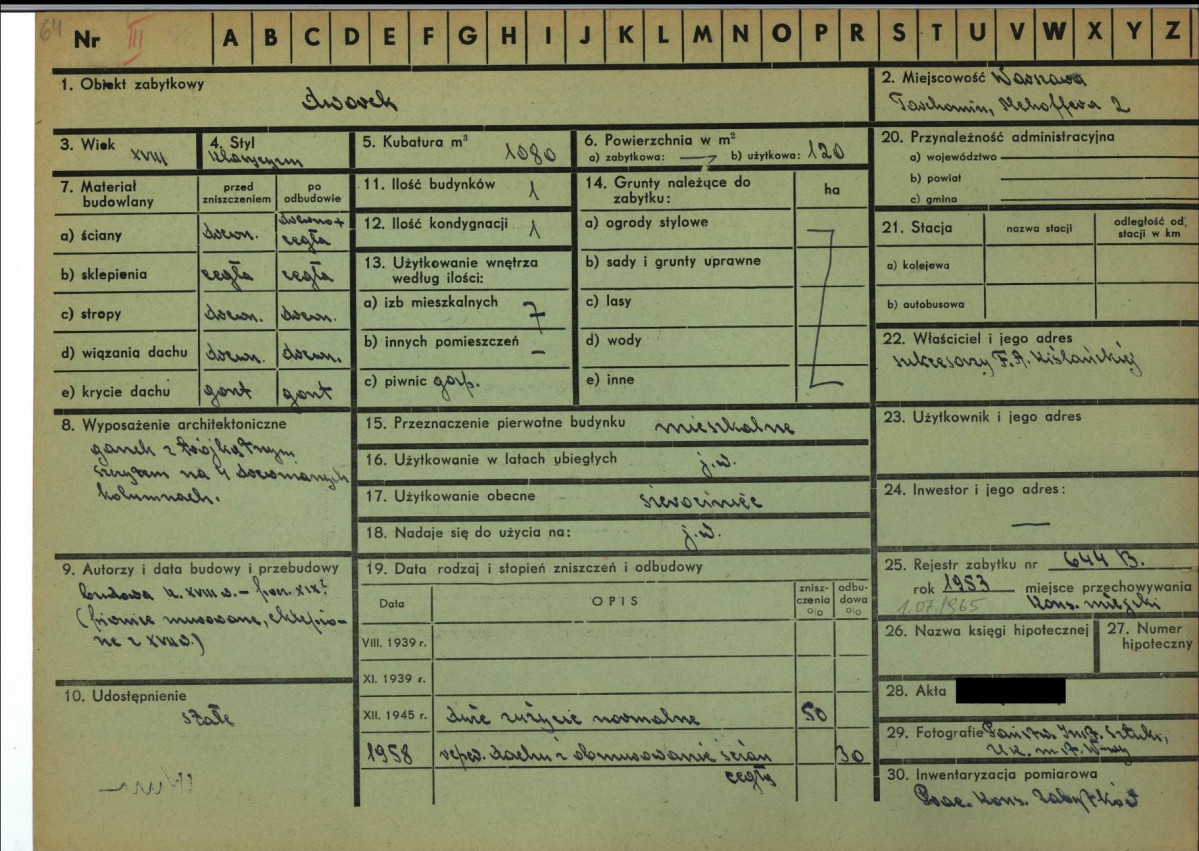 64
Nr III A B C D E F G H I J K L M N O P R S T U V W X Y Z
1. Obiekt zabytkowy
dworek
2. Miejscowość Warszawa
Tarchomin, Mehoffera 2
3. Wiek XVIII
4. Styl
klasycyzm
5. Kubatura m³ 1080
6. Powierzchnia w m²
a) zabytkowa: — b) użytkowa: 120
20. Przynależność administracyjna
a) województwo
b) powiat
c) gmina
7. Materiał budowlany
przed zniszczeniem
po odbudowie
a) ściany drewn. drewno + cegła
b) sklepienia cegła cegła
c) stropy drewn. drewn.
d) wiązania dachu drewn. drewn.
e) krycie dachu gont gont
11. Ilość budynków 1
12. Ilość kondygnacji 1
13. Użytkowanie wnętrza
według ilości:
a) izb mieszkalnych 7
b) innych pomieszczeń –
c) piwnic gosp.
14. Grunty należące do
zabytku:
ha
a) ogrody stylowe
b) sady i grunty uprawne
c) lasy
d) wody
e) inne
21. Stacja
nazwa stacji
odległość od stacji w km
a) kolejowa
b) autobusowa
22. Właściciel i jego adres
sukcesorzy F. A. Kiślańskiej
8. Wyposażenie architektoniczne
ganek z trójkątnym
szczytem na 4 drewnianych
kolumnach.
15. Przeznaczenie pierwotne budynku mieszkalne
16. Użytkowanie w latach ubiegłych j.w.
17. Użytkowanie obecne sierociniec
18. Nadaje się do użycia na: j.w.
23. Użytkownik i jego adres
24. Inwestor i jego adres:
—
9. Autorzy i data budowy i przebudowy
budowa k. XVIII w. – pocz. XIX?
(piwnice murowane, sklepio-
ne z XVII w.)
19. Data rodzaj i stopień zniszczeń i odbudowy
Data
OPIS
znisz-
czenia
o/o
odbu-
dowa
o/o
VIII. 1939 r.
XI. 1939 r.
XII. 1945 r. duże zużycie normalne 50
1958 reper. dachu i obmurowanie ścian 30
cegłą
25. Rejestr zabytku nr 644 B.
rok 1953 miejsce przechowywania
1.07.1965 Kons. miejski
26. Nazwa księgi hipotecznej
27. Numer
hipoteczny
10. Udostępnienie
stałe
28. Akta
29. Fotografie Państw. Inst. Sztuki,
U.K. m. st. W-wy
30. Inwentaryzacja pomiarowa
Prac. Kons. Zabytków